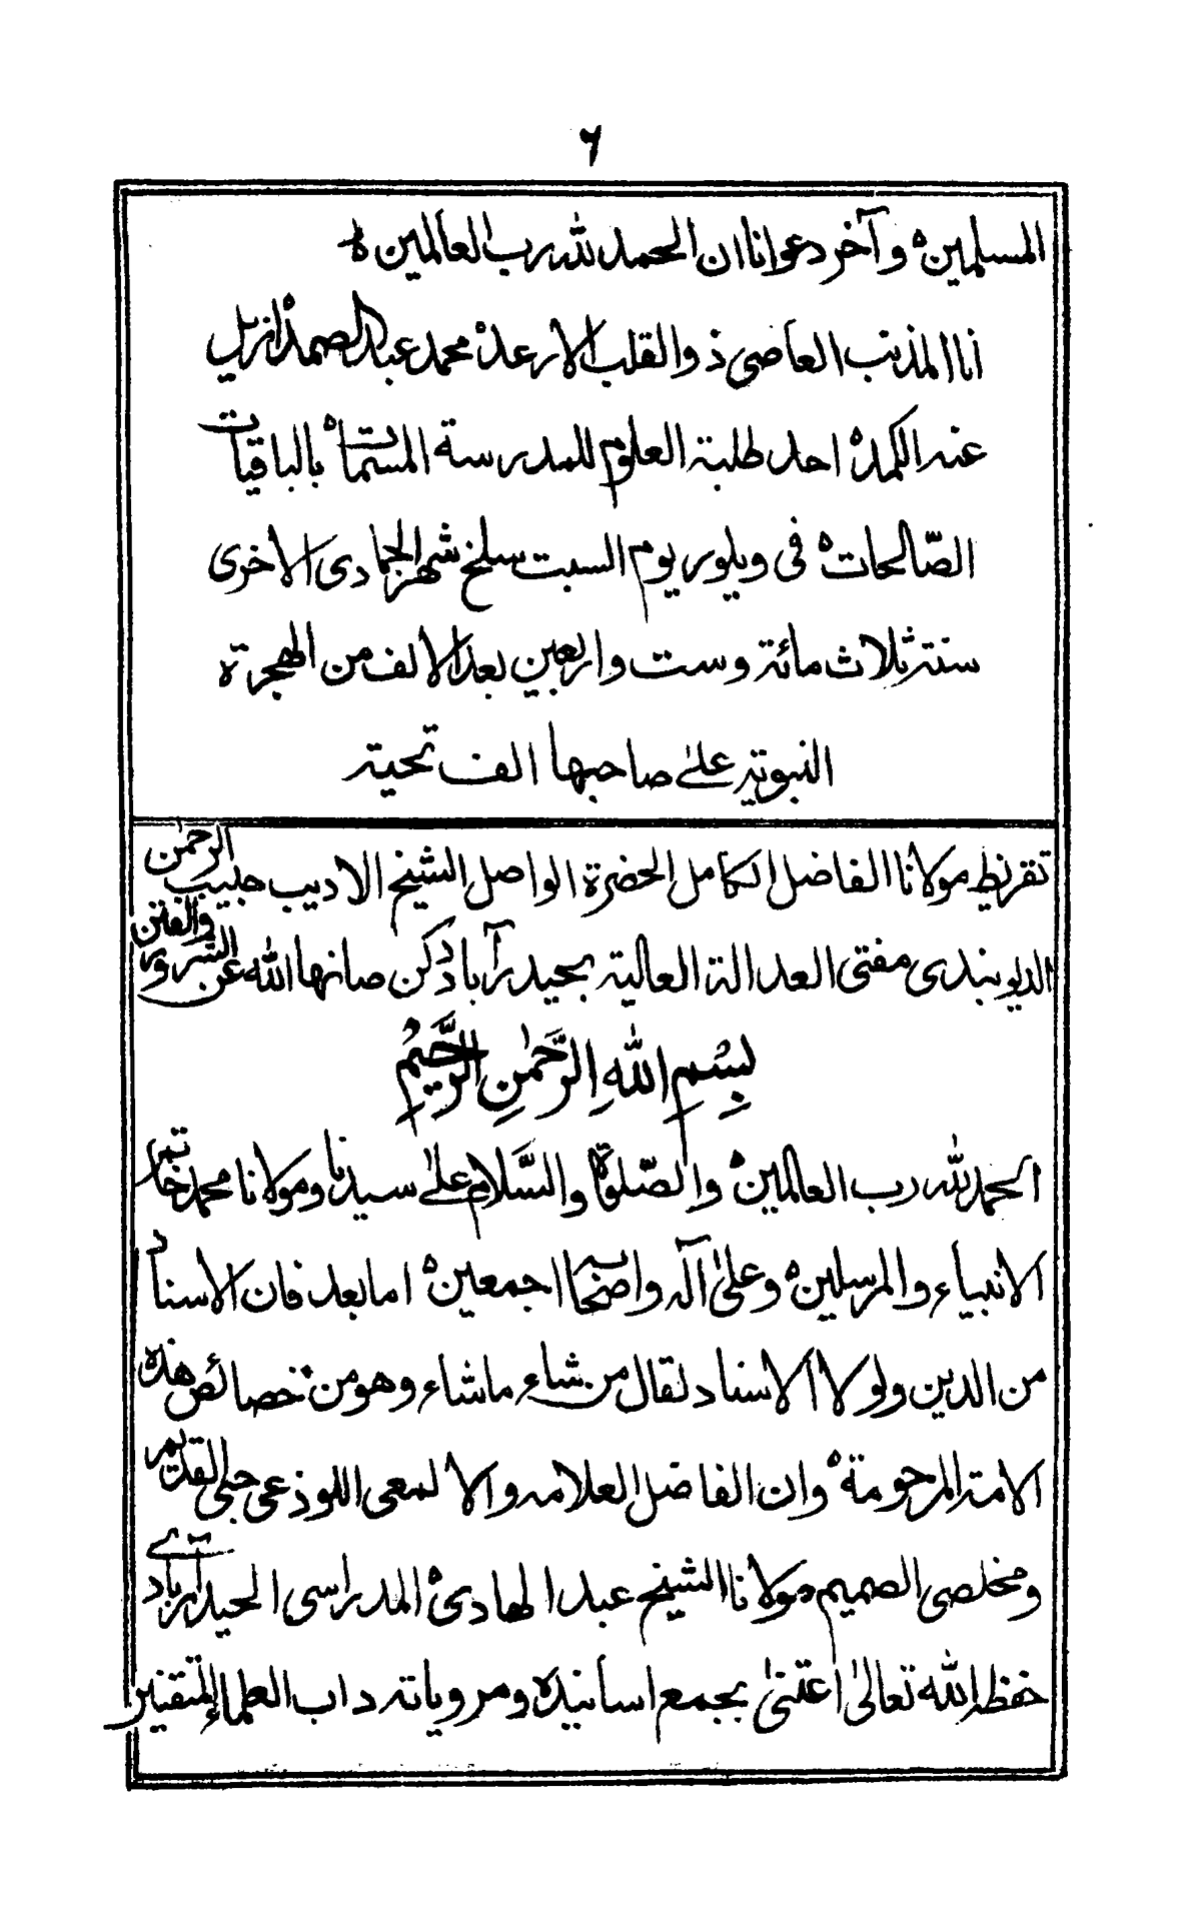 ٦
المسلمين ە وآخر دعوانا ان الحمد لله رب العالمين ە
انا المذنب العاصى ذو القلب الارعد ە محمد عبد الصمد ازيل
عنه الكمد ە احد طلبة العلوم للمدرسة المسماة بالباقيات
الصّالحات ە فى ويلور يوم السبت سلخ شهر الجمادى الاخرى
سنة ثلاث مائة وست واربعين بعد الالف من الهجرة
النبوية علىٰ صاحبها الف تحية
تقريظ مولانا الفاضل الكامل الحضرة الواصل الشيخ الاديب حبيب الرحمٰن
الديوبندى مفتى العدالة العالية بحيدرآباد دكن صانها الله عن الشرور والفتن
بِسْمِ اللهِ الرَّحْمٰنِ الرَّحِيْمِ
الحمد لله رب العالمين ە والصّلوة والسَّلام علىٰ سيدنا ومولانا محمد خاتم
الانبياء والمرسلين ە وعلىٰ آله واصحابه اجمعين ە اما بعد فان الاسناد
من الدين ولولا الاسناد لقال من شاء ما شاء وهو من خصائص هذه
الامة المرحومة ە وان الفاضل العلامه والالمعى اللوذعى حبى القديم
ومخلصى الصميم مولانا الشيخ عبد الهادى ە المدراسى الحيدرآبادے
حفظه الله تعالىٰ اعتنىٰ بجمع اسانيده ومروياته داب العلماء المتقنين